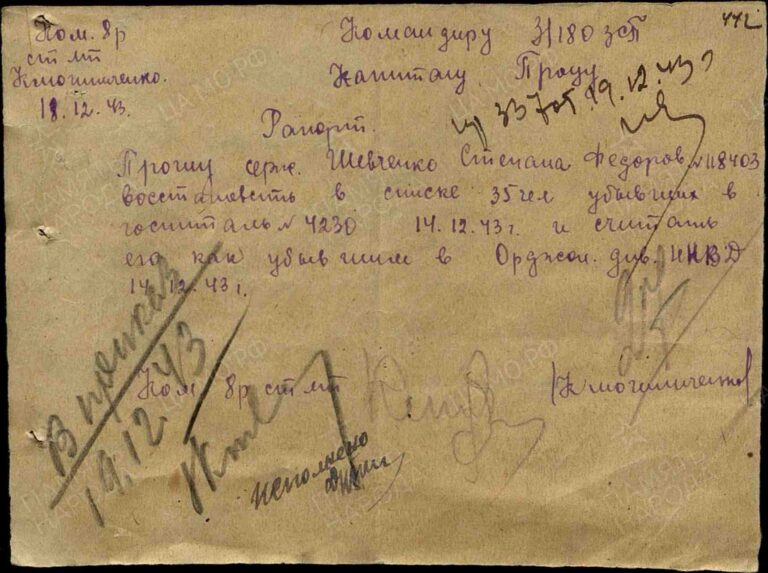 442
Ком. 8р
ст лт
Кмогимченко.
18.12.43.
Командиру 3/180 зсп
Капитану Процу
пр 337 от 19.12.43г
Рапорт.
Прошу серж. Шевченко Степана Федоров. №118403
восстановить в списке 35 чел убывших в
госпиталь №4230 14.12.43г. и считать
его как убывшим в Орджон. див. НКВД
14.12.43г.
В приказ
19.12.43
Ком 8р ст лт
исполнено